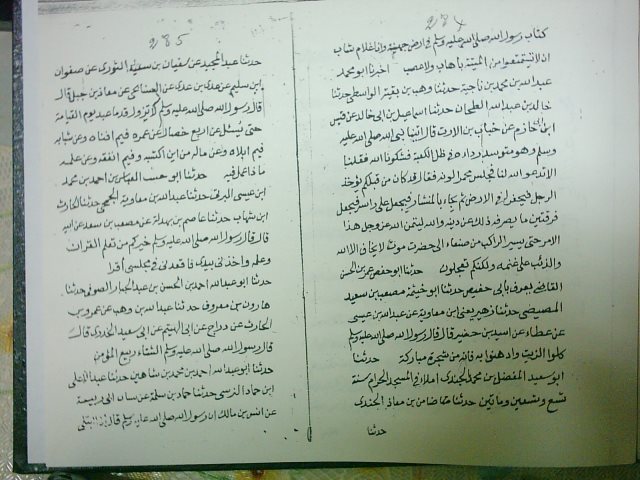 ٢٨٤
كتاب رسول الله صلى الله عليه وسلم في ارض جهينة وانا غلام شاب
ان لا تنتفعوا من الميتة باهاب ولا عصب اخبرنا ابو محمد
عبد الله بن محمد بن ناجية حدثنا وهب بن بقية الواسطي حدثنا
خالد بن عبد الله الطحان حدثنا اسماعيل بن ابي خالد عن قيس
ابن ابي حازم عن خباب بن الارت قال اتينا نبي الله صلى الله عليه
وسلم وهو متوسد رداءه في ظل الكعبة فشكونا الله فقلنا
تدعو الله لنا فجلس محمرا لونه فقال قد كان من قبلكم يؤخذ
الرجل فيحفر له في الارض ثم يجاء بالمنشار فيجعل على راسه فيجعل
فرقتين ما يصرفه ذلك عن دينه والله ليتمن الله عز وجل هذا
الامر حتى يسير الراكب من صنعاء الى حضرت موت لا يخاف الا الله
والذئب على غنمه ولكنكم تعجلون حدثنا ابو حفص عمر بن الحسن
القاضي يعرف بابي حفيص حدثنا ابو خيثمة مصعب بن سعيد
المصيصي حدثنا زهير يعني ابن معاوية عن عبد الله بن عيسى
عن عطاء عن اسيد بن حضير قال قال رسول الله صلى الله عليه وسلم
كلوا الزيت وادهنوا به فانه من شجرة مباركة حدثنا
ابو سعيد المفضل بن محمد الجندي املاء في المسجد الحرام سنة
تسع وتسعين ومائتين حدثنا صامت بن معاذ الجندي
حدثنا
٢٨٥
حدثنا عبد المجيد عن سفيان بن سعيد الثوري عن صفوان
ابن سليم عن عدي بن عدي عن الصنابحي عن معاذ بن جبل قال
قال رسول الله صلى الله عليه وسلم لا تزول قدما عبد يوم القيامة
حتى يسئل عن اربع خصال عن عمره فيم افناه وعن شبابه
فيم ابلاه وعن ماله من اين اكتسبه وفيم انفقه وعن علمه
ماذا عمل فيه حدثنا ابو حبيب العباس بن احمد بن محمد
ابن عيسى البرتي حدثنا عبد الله بن معاوية الجمحي حدثنا الحارث
ابن نبهان حدثنا عاصم بن بهدلة عن مصعب بن سعد عن ابيه
قال قال رسول الله صلى الله عليه وسلم خيركم من تعلم القران
وعلمه واخذ بيدي فاقعدني في مجلسي أقرا
حدثنا ابو عبد الله احمد بن الحسن بن عبد الجبار الصوفي حدثنا
هارون بن معروف حدثنا عبد الله بن وهب عن عمرو بن
الحارث عن دراج عن ابي الهيثم عن ابي سعيد الخدري قال
قال رسول الله صلى الله عليه وسلم الشتاء ربيع المؤمن
حدثنا ابو عبد الله احمد بن محمد بن شاهين حدثنا عبد الاعلى
ابن حماد النرسي حدثنا حماد بن سلمة عن سنان ابي ربيعة
عن انس بن مالك ان رسول الله صلى الله عليه وسلم قال اذا ابتلى